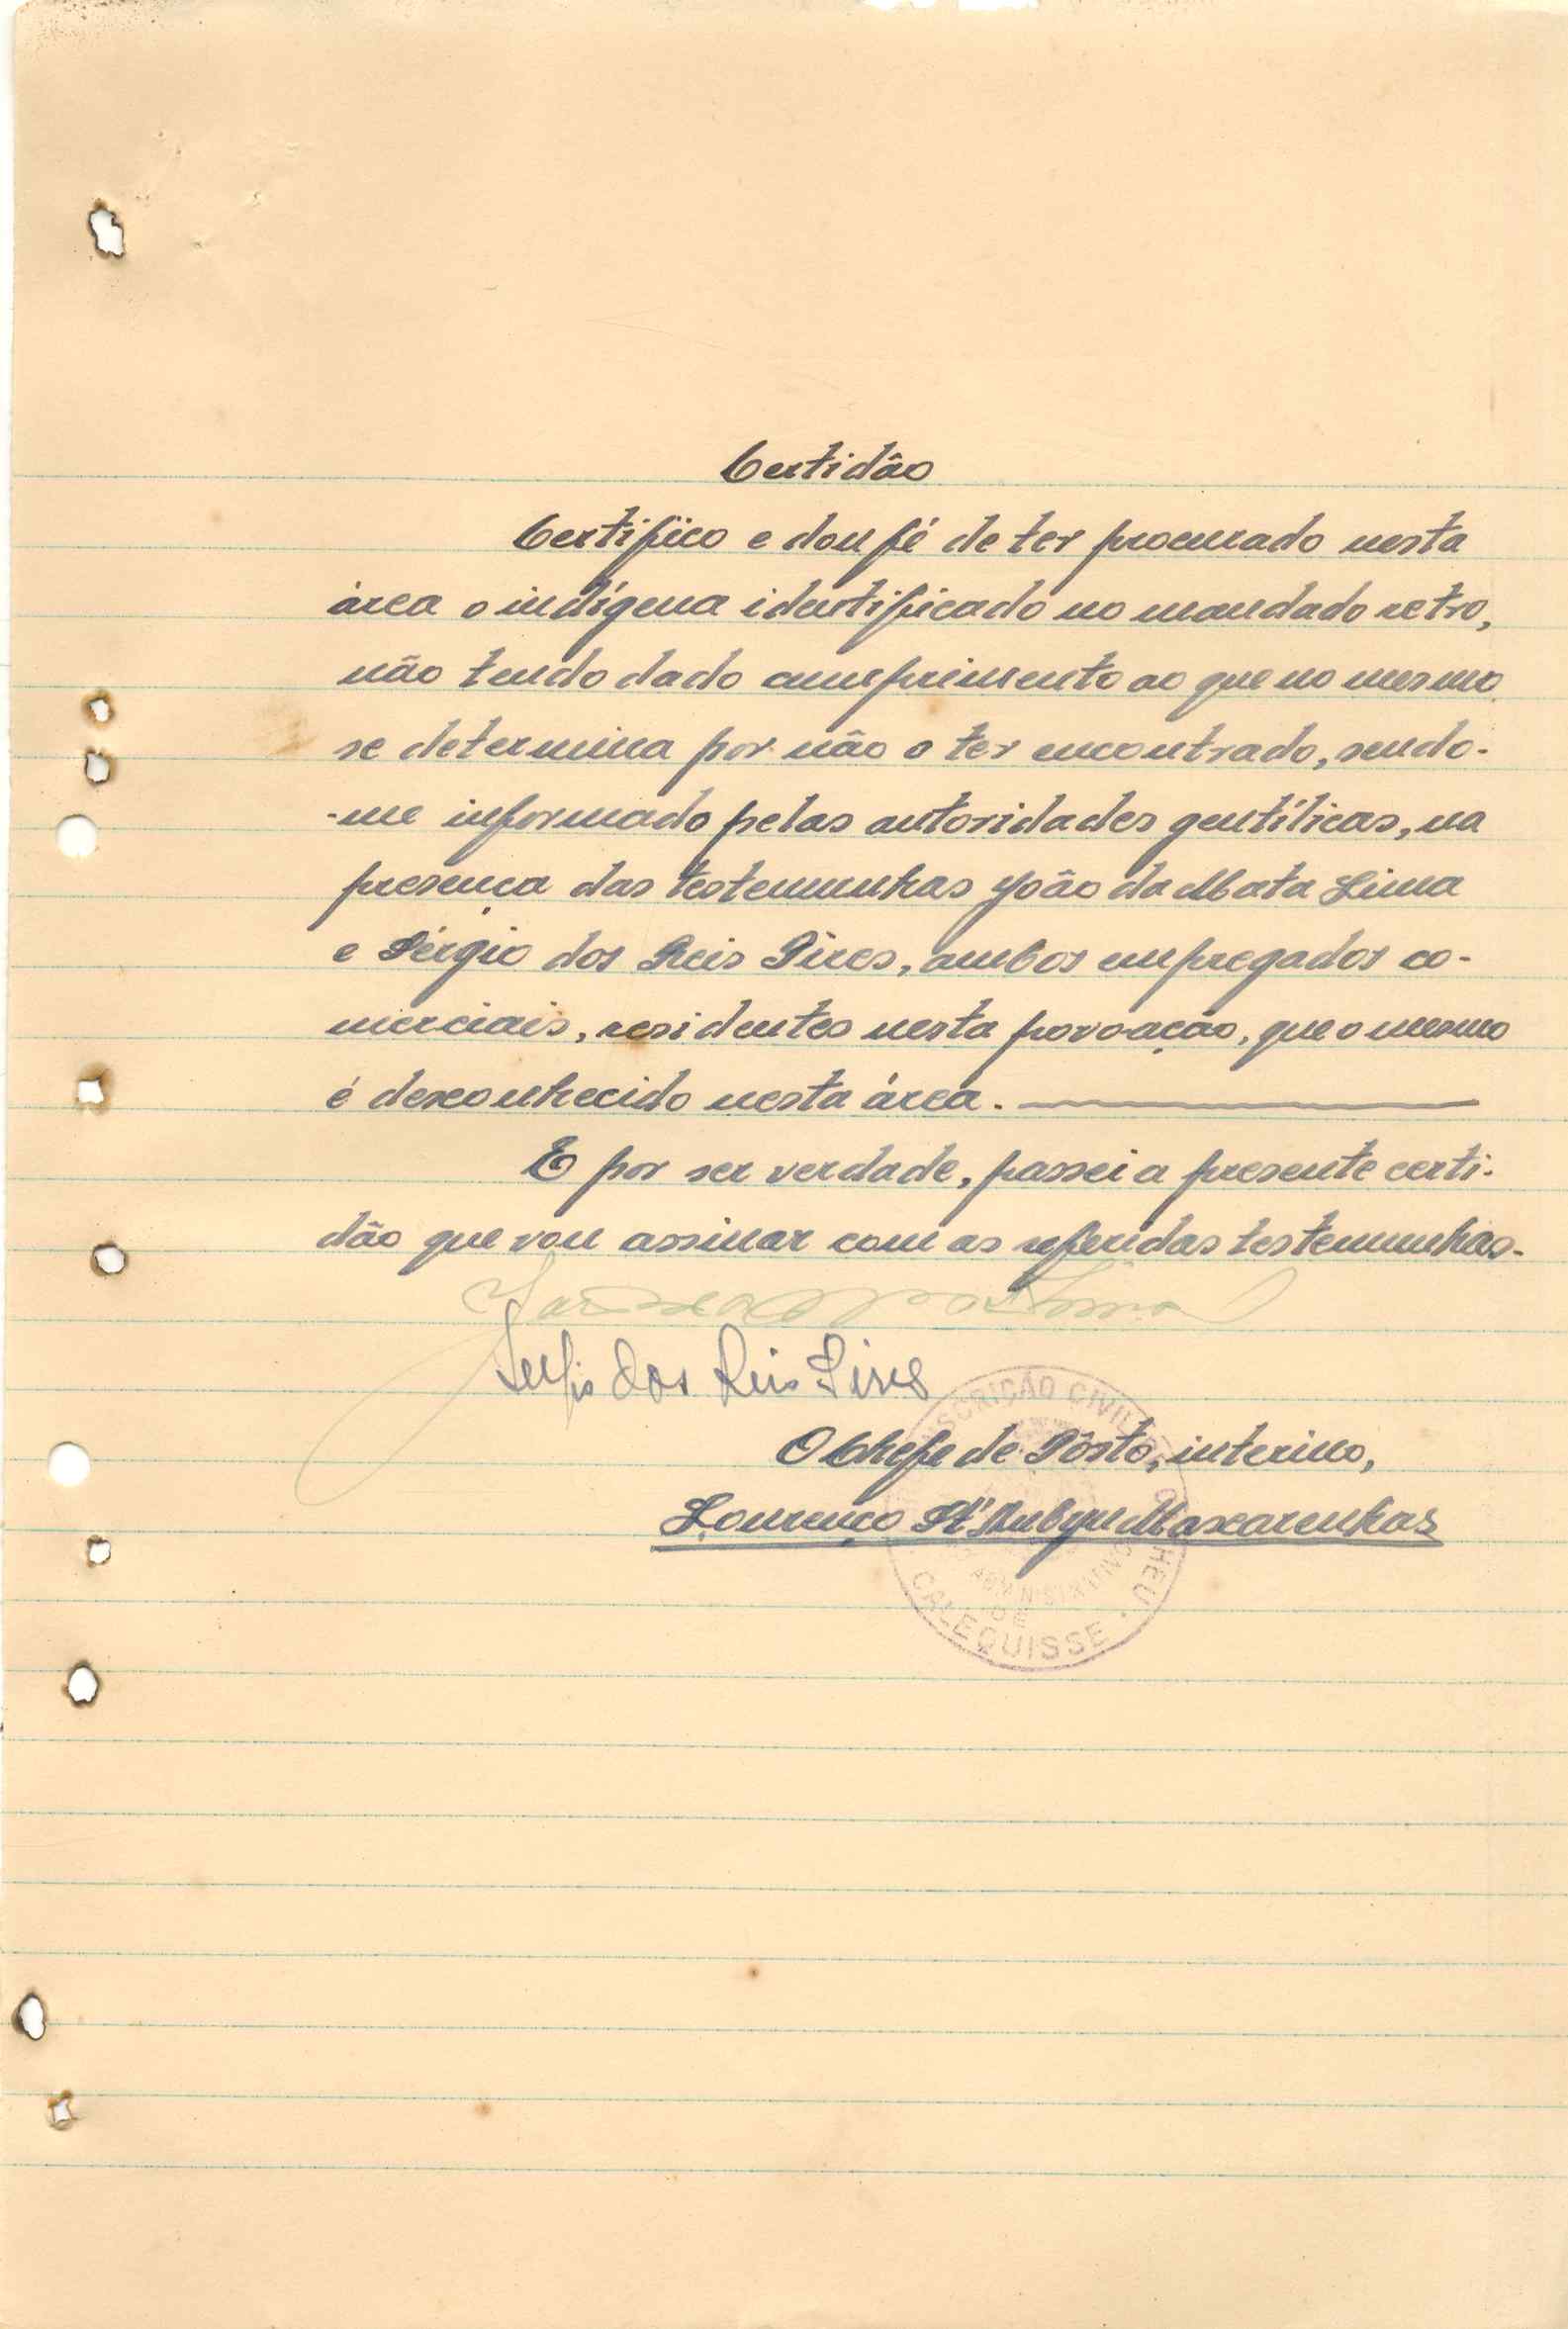 Certidão
Certifico e dou fé de ter procurado nesta
área o indígena identificado no mandado retro,
não tendo dado cumprimento ao que no mesmo
se determina por não o ter encontrado, sendo-
-me informado pelas autoridades gentílicas, na
presença das testemunhas João da Mata Lima
e Sérgio dos Reis Pires, ambos empregados co-
merciais, residentes nesta povoação, que o mesmo
é desconhecido nesta área.
E por ser verdade, passei a presente certi-
dão que vou assinar com as referidas testemunhas.
Sérgio dos Reis Pires
O Chefe de Pôsto, interino,
Lourenço Mascarenhas
CIVIL
ADMINISTRATIVO
DE
CALEQUISSE